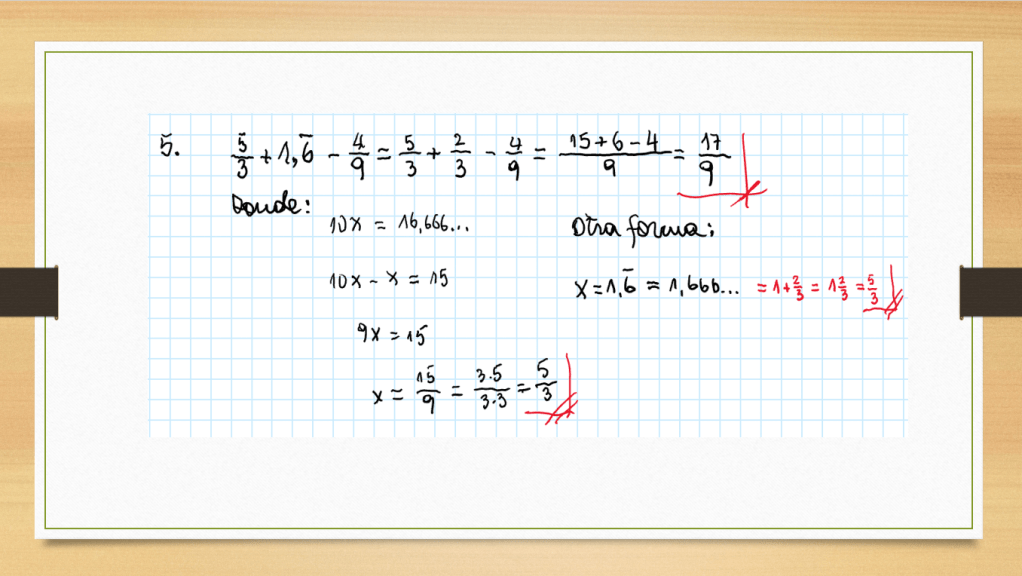 5. 5/3 + 1,6̅ - 4/9 = 5/3 + 2/3 - 4/9 = (15+6-4)/9 = 17/9
Donde:
10x = 16,666...
10x - x = 15
9x = 15
x = 15/9 = 3·5/3·3 = 5/3
Otra forma:
x = 1,6̅ = 1,666... = 1+2/3 = 1 2/3 = 5/3